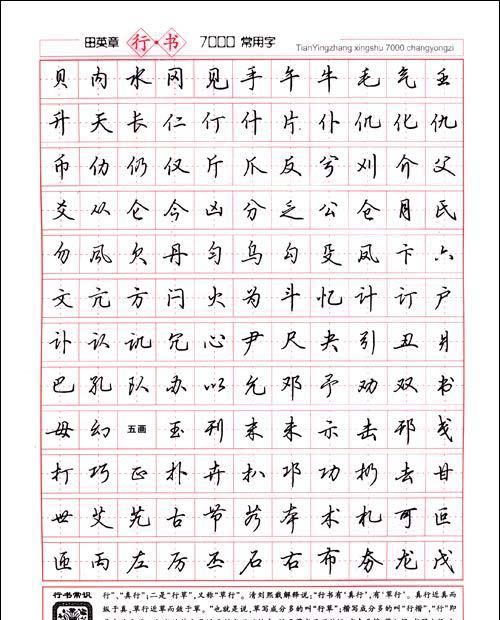 田英章 行·书 7000 常用字
TianYingzhang xingshu 7000 changyongzi
贝 内 水 冈 见 手 午 牛 毛 气 壬
升 天 长 仁 仃 什 片 仆 仉 化 仇
币 仂 仍 仅 斤 爪 反 兮 刈 介 父
爻 从 仑 今 凶 分 乏 公 仓 月 氏
勿 风 欠 丹 匀 乌 勾 殳 凤 卞 六
文 亢 方 闩 火 为 斗 忆 计 订 户
讣 认 讥 冗 心 尹 尺 夬 引 丑 爿
巴 孔 队 办 以 允 邓 予 劝 双 书
毋 幻 五画 玉 刊 示 击 邗 戋
打 巧 正 扑 卉 扒 邛 功 扔 去 甘
世 艾 艽 古 节 艿 本 术 札 可 叵
匝 丙 左 厉 丕 石 右 布 夯 龙 戊
行书常识 行”,“真行”;二是“行草”,又称“草行”。清刘熙载解释说:“行书有‘真行’,有‘草行’。真行近真而
纵于真,草行近草而敛于草。”也就是说,草写成分多的叫“行草”;楷写成分多的叫“行楷”,“行”即